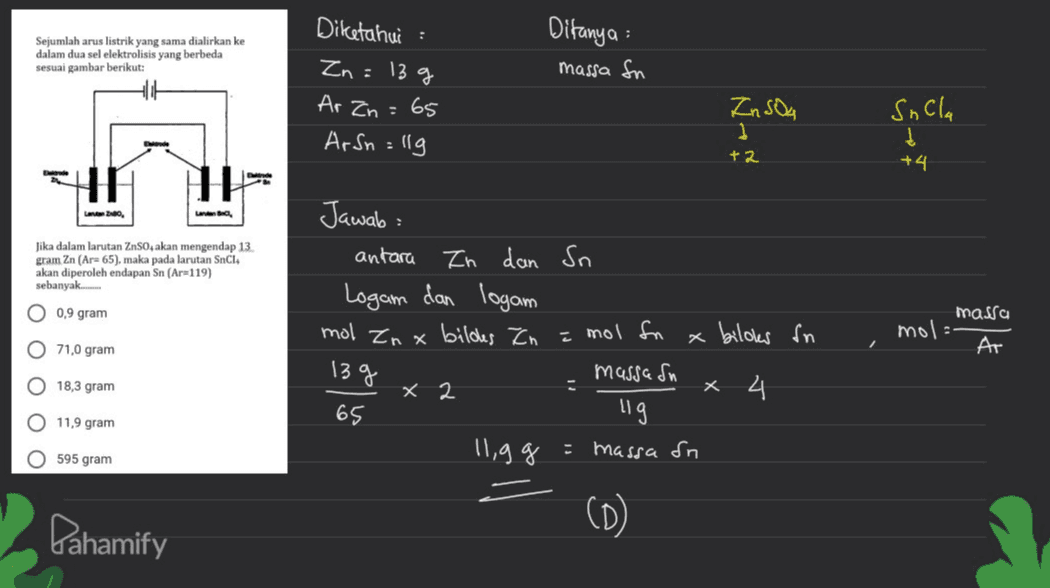 Sejumlah arus listrik yang sama dialirkan ke
dalam dua sel elektrolisis yang berbeda
sesuai gambar berikut:
Elektrode
Elektrode
Zn
Elektrode
Sn
Larutan ZnSO₄
Larutan SnCl₄
Jika dalam larutan ZnSO₄ akan mengendap 13
gram Zn (Ar= 65), maka pada larutan SnCl₄
akan diperoleh endapan Sn (Ar=119)
sebanyak........
0,9 gram
71,0 gram
18,3 gram
11,9 gram
595 gram
Diketahui :
Zn = 13 g
Ar Zn = 65
Ar Sn = 119
Ditanya :
massa Sn
ZnSO₄ SnCl₄
↓ ↓
+2 +4
Jawab :
antara Zn dan Sn
Logam dan logam
mol Zn x biloks Zn = mol Sn x biloks Sn , mol = massa / Ar
13 g / 65 x 2 = massa Sn / 119 x 4
11,9 g = massa Sn
(D)
Pahamify